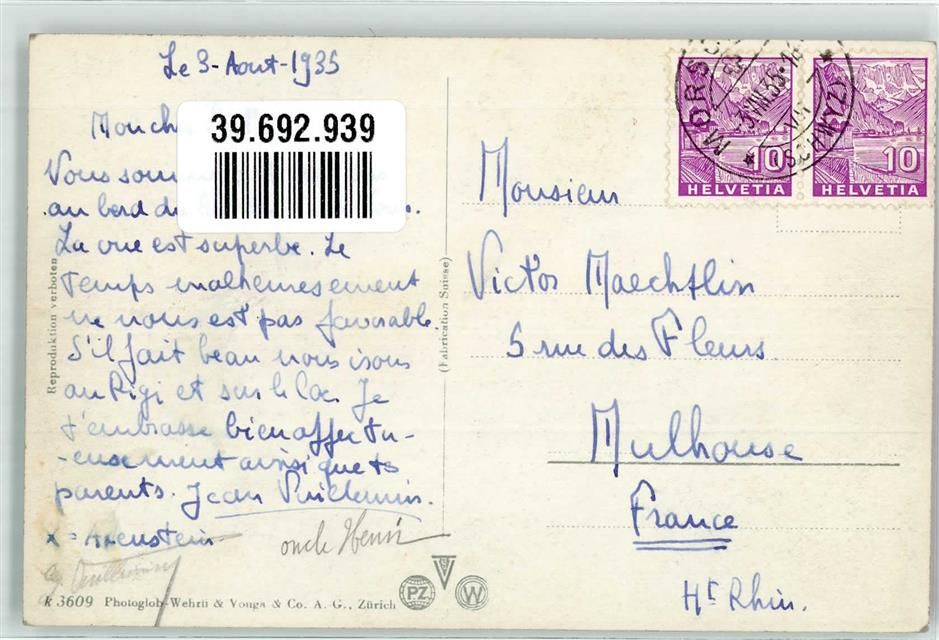 Le 3-Aout-1935
Mon ch
39.692.939
Vous som
au bord du
La vue est superbe. Le
temps malheureusement
ne nous est pas favorable.
S'il fait beau nous irons
au Rigi et sur le lac. Je
t'embrasse bien affectu-
-eusement ainsi que ts
parents. Jean Vuillemin.
x = Axenstein
oncle Henri
Vuillemin
k 3609 Photoglob-Wehrli & Vouga & Co. A. G., Zürich
Reproduktion verboten
(Fabrication Suisse)
PZ
W
MORSC
3.VIII.35
(SCHWYZ)
10
HELVETIA
10
HELVETIA
Monsieur
Victor Maechtlin
5 rue des Fleurs
Mulhouse
France
Ht Rhin.